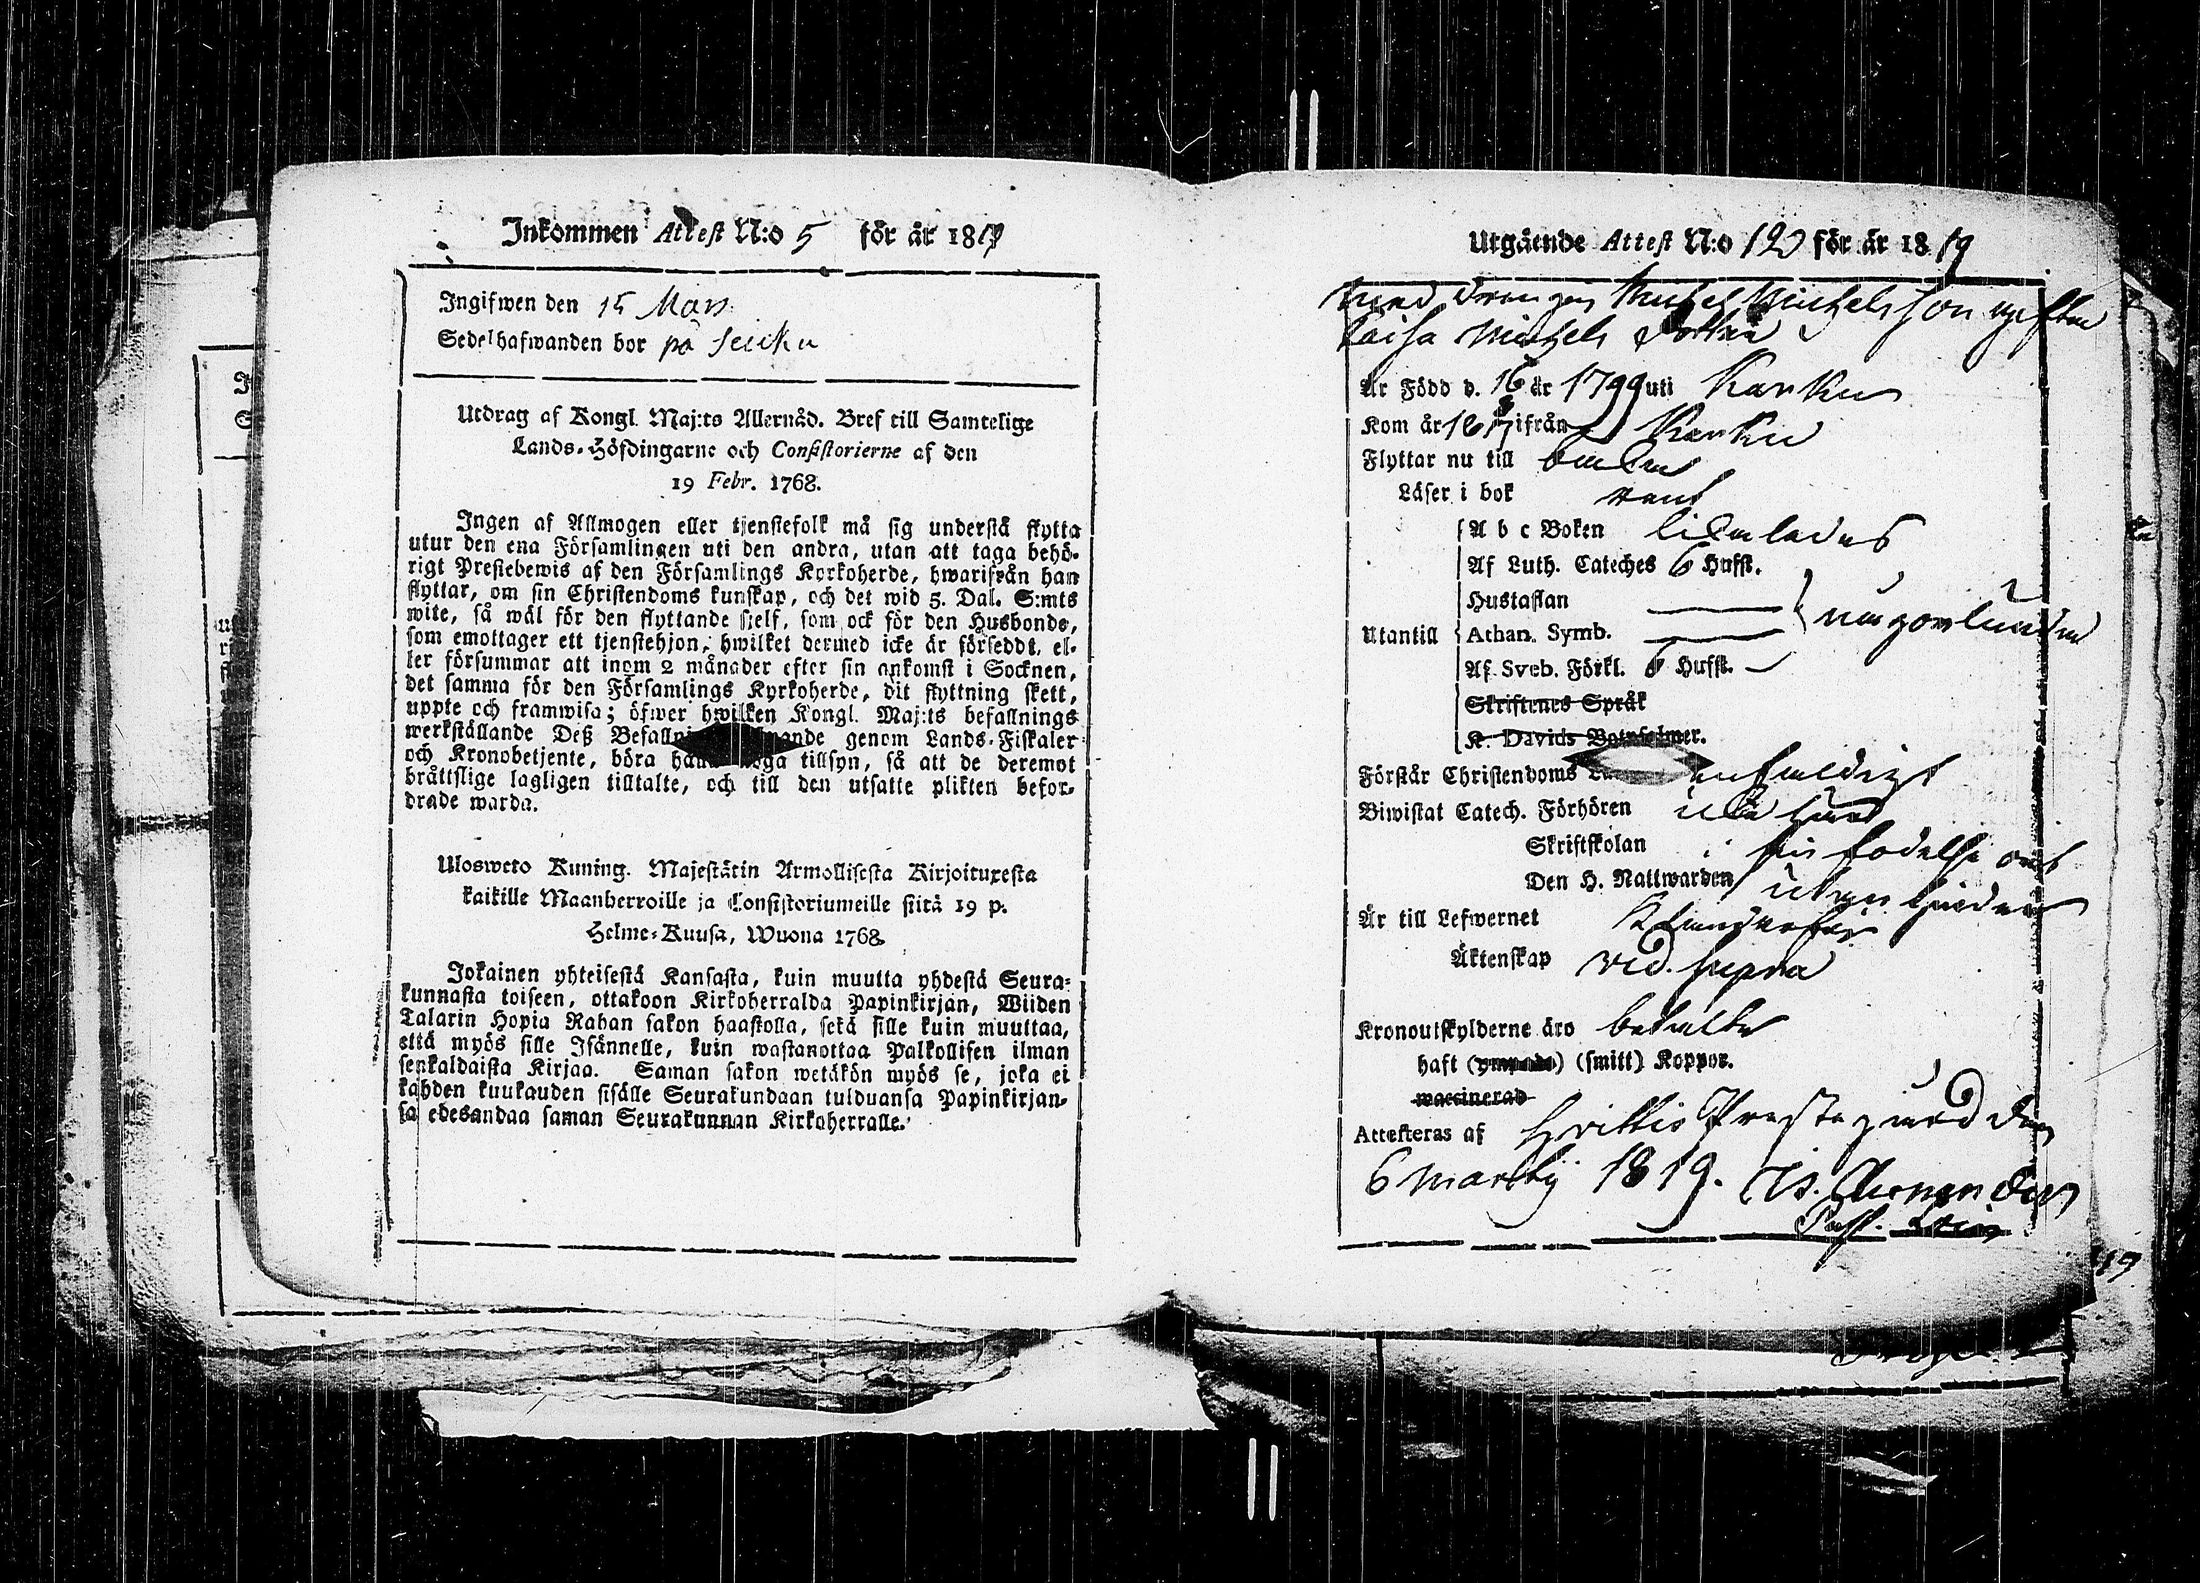 Inkommen Attest N:o 5 för år 1819
Ingifwen den 15 Mars
Sedelhafwanden bor på
Utdrag af Kongl. Maj:ts Allernåd. Bref till Samtelige
Lands-Höfdingarne och Consistorierne af den
19 Febr. 1768.
Ingen af Allmogen eller tjenstefolk må sig understå flytta
utur den ena Församlingen uti den andra, utan att taga behö-
rigt Prestebewis af den Församlings Kyrkoherde, hwarifrån han
flyttar, om sin Christendoms kunskap, och det wid 5. Dal. S:mts
wite, så wäl för den flyttande sjelf, som ock för den Husbonde,
som emottager ett tjenstehjon, hwilket dermed icke är förseddt, el-
ler försummar att inom 2 månader efter sin ankomst i Socknen,
det samma för den Församlings Kyrkoherde, dit flyttning skett,
uppte och framwisa; öfwer hwilken Kongl. Maj:ts befallnings
werkställande Deß genom Lands-Fiskaler
och Kronobetjente, böra tillsyn, så att de deremot
bråttslige lagligen tilltalte, och till den utsatte plikten befor-
drade warda.
Uloswеto Kuning. Majestätin Armollisesta Kirjoituxesta
kaikille Maanherroille ja Consistoriumeille siitä 19 p.
Helme-Kuusa, Wuona 1768.
Jokainen yhteisestä Kansasta, kuin muutta yhdestä Seura-
kunnasta toiseen, ottakoon Kirkoherralda Papinkirjan, Wiiden
Talarin Hopia Rahan sakon haastolla, sekä sille kuin muuttaa,
että myös sille Isännelle, kuin wastanottaa Palkollisen ilman
senkaldaista Kirjaa. Saman sakon wetäkön myös se, joka ei
kahden kuukauden sisälle Seurakundaan tulduansa Papinkirjan-
sa edesandaa saman Seurakunnan Kirkoherralle.
Utgående Attest N:o 120 för år 1819
drengen Michel Michelsson
Caisa Michels Dotter
Är Född d. 16 år 1799 uti Karku
Kom år 1817 ifrån Karku
Flyttar nu till
Läser i bok rent
A b c Boken likaledes
Af Luth. Cateches 6 Hufst.
Hustaflan
Utantill Athan. Symb. någorlunda
Af Sveb. Förkl. 6 Hufst.
Skriftenes Språk
K. Davids Botpsalmer.
Förstår Christendoms enfaldigt
Biwistat Catech. Förhören
Skriftskolan i sin födelse ort
Den H. Nattwarden utan hinder
Är till Lefwernet
Äktenskap vid. supra
Kronoutskylderne äro betalte
haft () (smitt) Koppor.
waccinerad
Attesteras af Hvittis Prestegård den
6 Martij 1819.
Past.